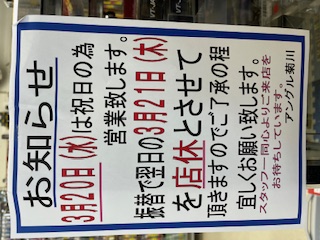 お知らせ
3月20日(水)は祝日の為
営業致します。
振替で翌日の3月21日(木)
を店休とさせて
頂きますのでご了承の程
宜しくお願い致します。
スタッフ一同心よりご来店を
お待ちしています。
アングル菊川